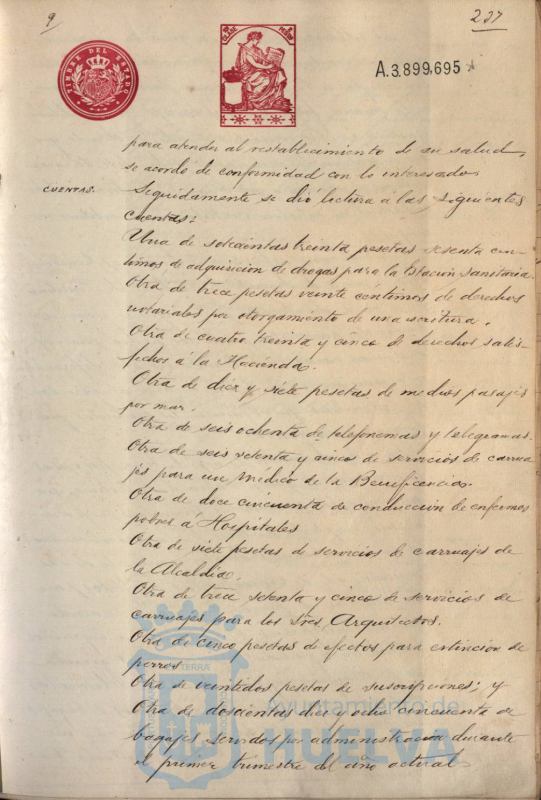 9
237
TIMBRE DEL ESTADO
A.3.899,695
para atender al restablecimiento de su salud,
se acordó de conformidad con lo interesado.
CUENTAS.
Seguidamente se dió lectura á las siguientes
cuentas:
Una de setecientas treinta pesetas sesenta cén-
timos de adquisicion de drogas para la Estacion sanitaria.
Otra de trece pesetas veinte céntimos de derechos
notariales por otorgamiento de una escritura.
Otra de cuatro treinta y cinco de derechos satis-
fechos á la Hacienda.
Otra de diez y siete pesetas de medios pasajes
por mar.
Otra de seis ochenta de telefonemas y telegramas.
Otra de seis setenta y cinco de servicios de carrua-
jes para un Médico de la Beneficencia.
Otra de doce cincuenta de conducción de enfermos
pobres á Hospitales
Otra de siete pesetas de servicios de carruajes de
la Alcaldía.
Otra de trece setenta y cinco de servicios de
carruajes para los Sres. Arquitectos.
Otra de cinco pesetas de efectos para extinción de
perros
Otra de veintidos pesetas de suscripciones; y
Otra de doscientas diez y ocho cincuenta de
bagajes servidos por administración durante
el primer trimestre del año actual
Ayuntamiento de
HUELVA